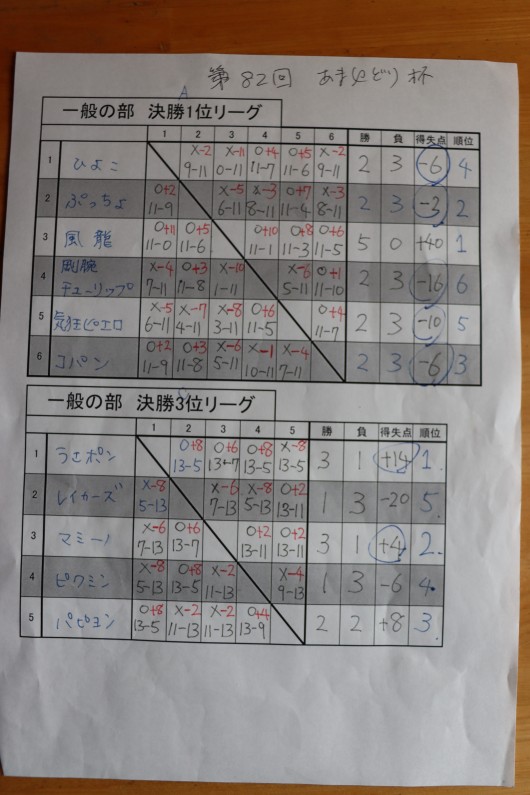 第82回 あまやどり杯
A
一般の部 決勝1位リーグ
1 2 3 4 5 6 勝 負 得失点 順位
1 ひよこ X-2 9-11 X-11 0-11 O+4 11-7 O+5 11-6 X-2 9-11 2 3 -6 4
2 ぷっちょ O+2 11-9 X-5 6-11 X-3 8-11 O+7 11-4 X-3 8-11 2 3 -2 2
3 風龍 O+11 11-0 O+5 11-6 O+10 11-1 O+8 11-3 O+6 11-5 5 0 +40 1
4 剛腕チューリップ X-4 7-11 O+3 11-8 X-10 1-11 X-6 5-11 O+1 11-10 2 3 -16 6
5 気狂ピエロ X-5 6-11 X-7 4-11 X-8 3-11 O+6 11-5 O+4 11-7 2 3 -10 5
6 コパン O+2 11-9 O+3 11-8 X-6 5-11 X-1 10-11 X-4 7-11 2 3 -6 3
一般の部 決勝3位リーグ
1 2 3 4 5 勝 負 得失点 順位
1 うさポン O+8 13-5 O+6 13-7 O+8 13-5 X-8 13-5 3 1 +14 1.
2 レイカーズ X-8 5-13 X-6 7-13 X-8 5-13 O+2 13-11 1 3 -20 5.
3 マミーノ X-6 7-13 O+6 13-7 O+2 13-11 O+2 13-11 3 1 +4 2.
4 ピクミン X-8 5-13 O+8 13-5 X-2 11-13 X-4 9-13 1 3 -6 4.
5 パピヨン O+8 13-5 X-2 11-13 X-2 11-13 O+4 13-9 2 2 +8 3.